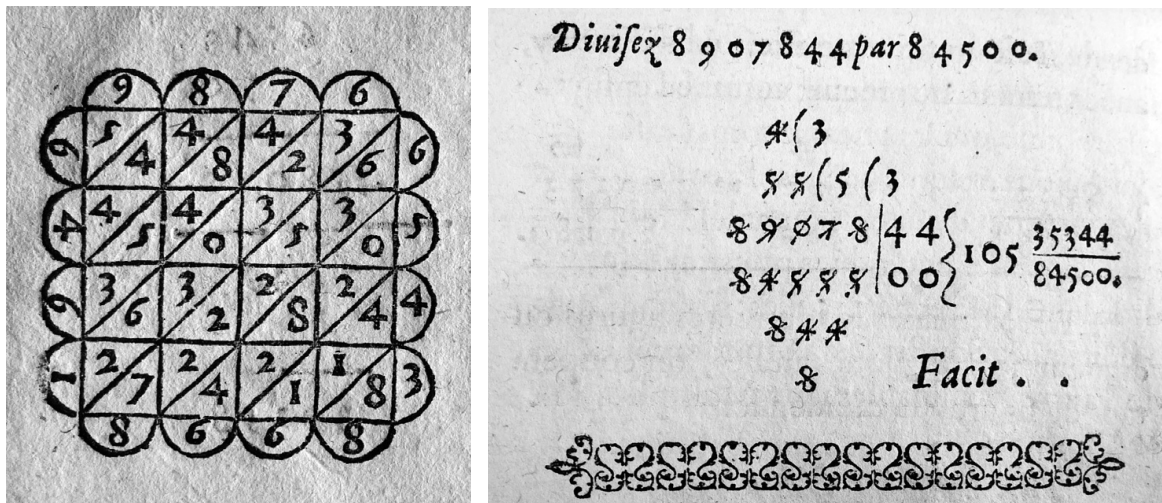 9 8 7 6
6 5 4 4 8 4 2 3 6 6
4 4 5 4 0 3 5 3 0 5
6 3 6 3 2 2 8 2 4 4
1 2 7 2 4 2 1 1 8 3
8 6 6 8
Diuiſez 8907844 par 84500.
4(3
55(5(3
89078|44}105 35344
84555|00 84500.
844
8 Facit . .